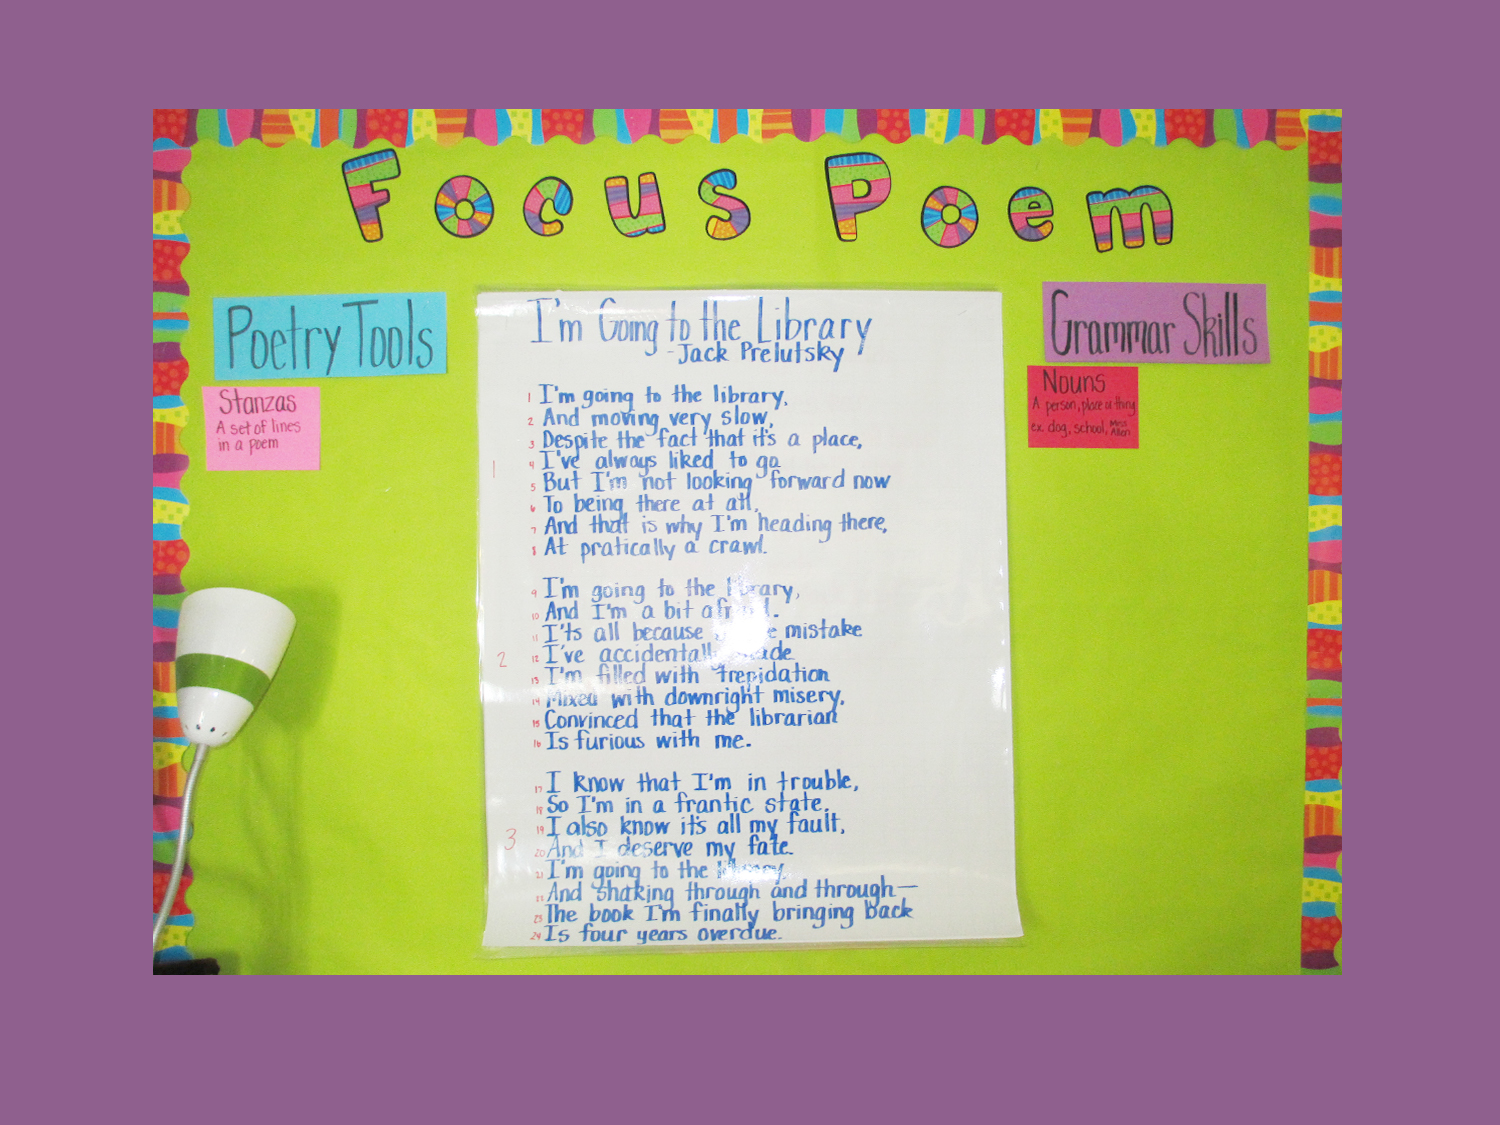 Focus Poem
Poetry Tools
Stanzas
A set of lines
in a poem
I'm Going to the Library
-Jack Prelutsky
1 I'm going to the library,
2 And moving very slow,
3 Despite the fact that it's a place,
4 I've always liked to go
5 But I'm not looking forward now
6 To being there at all,
7 And that is why I'm heading there,
8 At pratically a crawl.
1
9 I'm going to the library,
10 And I'm a bit afraid.
11 I'ts all because mistake
12 I've accidentally made
13 I'm filled with trepidation
14 Mixed with downright misery,
15 Convinced that the librarian
16 Is furious with me.
2
17 I know that I'm in trouble,
18 So I'm in a frantic state,
19 I also know it's all my fault,
20 And I deserve my fate.
21 I'm going to the library,
22 And shaking through and through—
23 The book I'm finally bringing back
24 Is four years overdue.
3
Grammar Skills
Nouns
A person, place or thing
ex. dog, school, Miss Allen